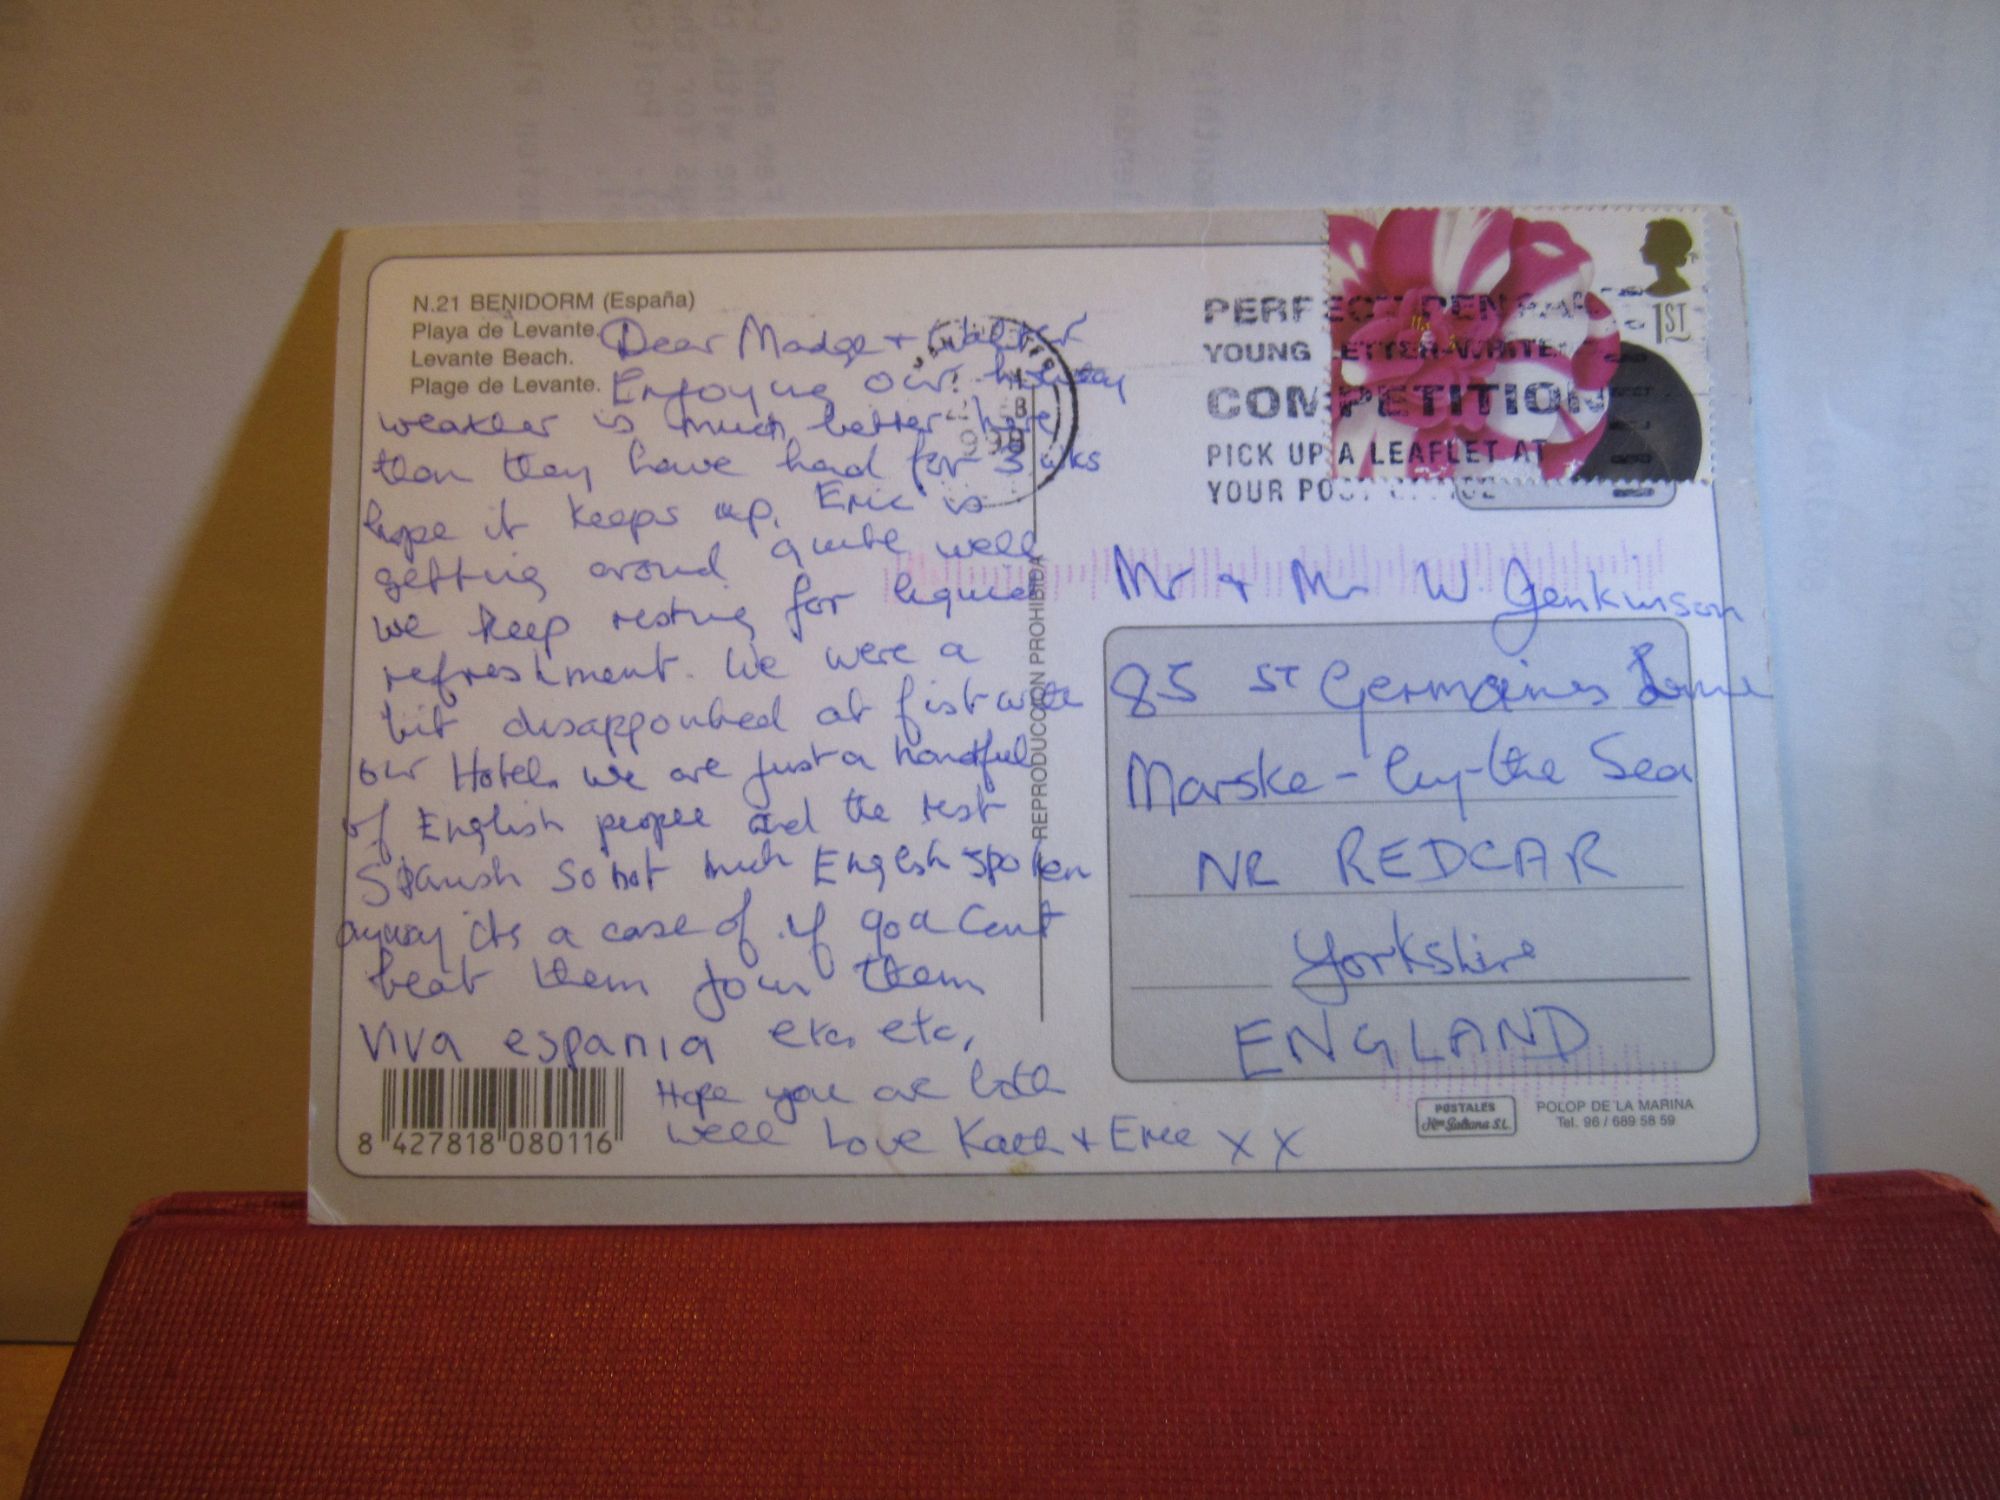 N.21 BENIDORM (España)
Playa de Levante.
Levante Beach.
Plage de Levante.
Dear Madge + Walter
Enjoying our holiday
weather is much better here
than they have had for 3 wks
hope it keeps up. Eric is
getting around quite well
we keep resting for liquid
refreshment. We were a
bit disappointed at fist with
our Hotel. We are just a handful
of English people and the rest
Spanish so not much English spoken
anyway its a case of if you cant
beat them join them
VIVA espania etc. etc,
Hope you are both
well Love Kath + Eric x x
8 427818 080116
REPRODUCCION PROHIBIDA
PERFECT PEN PAL
YOUNG LETTER-WRITERS
COMPETITION
PICK UP A LEAFLET AT
YOUR POST OFFICE
1ST
Mr + Mrs W. Jenkinson
85 ST Germains Lane
Marske-by-the Sea
NR REDCAR
Yorkshire
ENGLAND
POSTALES
Hnos Galiana S.L.
POLOP DE LA MARINA
Tel. 96 / 689 58 59